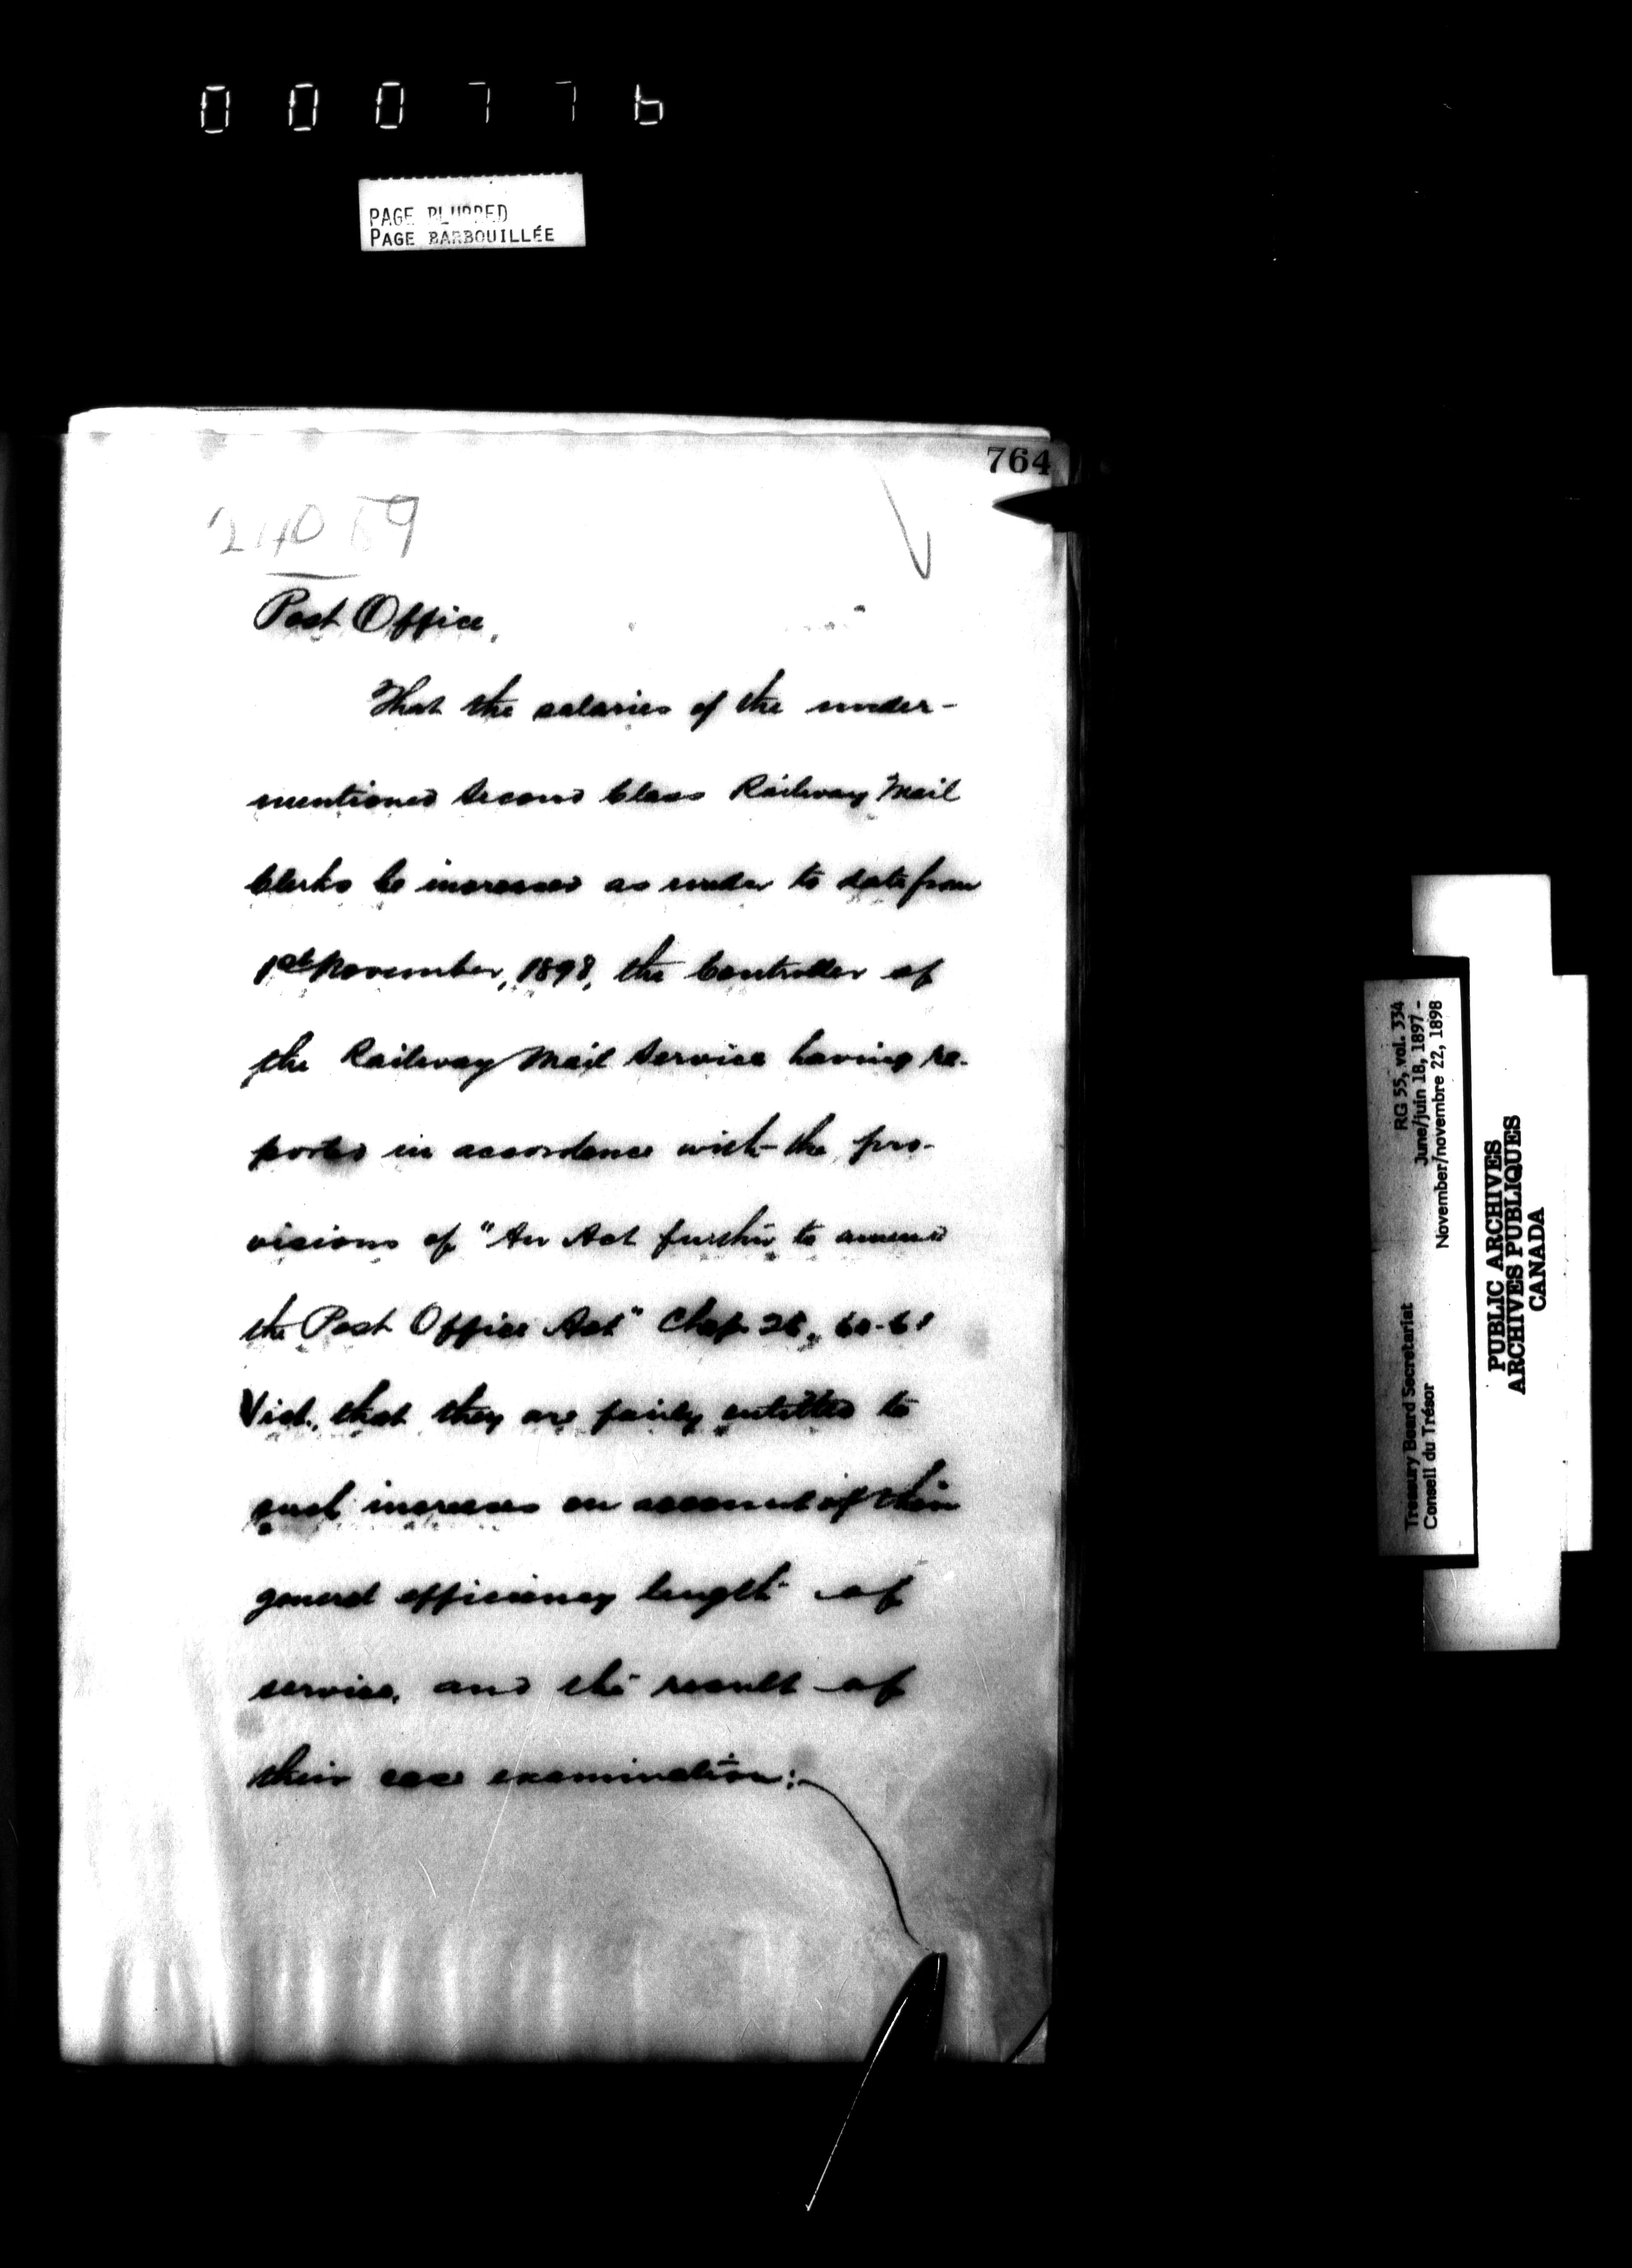 000776
PAGE BLURRED
PAGE BARBOUILLÉE
764
Post Office,
That the salaries of the under-
mentioned Second Class Railway Mail
Clerks be increased as under to date from
1st November, 1898, the Controller of
the Railway Mail Service having re-
ported in accordance with the pro-
visions of "An Act further to amend
the Post Office Act" Chap. 26, 60-61
Vict., that they are fairly entitled to
such increases on account of their
general efficiency length of
service, and the result of
their case examination:
Treasury Board Secretariat
Conseil du Trésor
RG 55, vol. 334
June/juin 18, 1897 -
November/novembre 22, 1898
PUBLIC ARCHIVES
ARCHIVES PUBLIQUES
CANADA